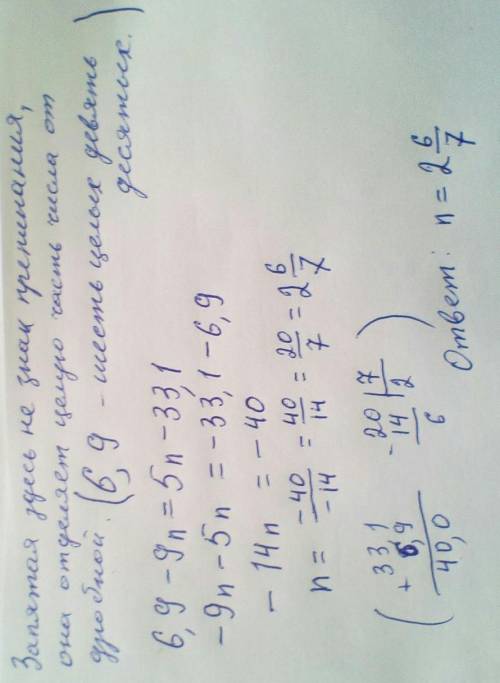 Запятая здесь не знак препинания,
она отделяет целую часть числа от
дробной. (6,9 - шесть целых девять
десятых.)
6,9 - 9n = 5n - 33,1
-9n - 5n = -33,1 - 6,9
-14n = -40
n = -40/-14 = 40/14 = 20/7 = 2 6/7
( + 33,1 - 20 | 7
6,9 14 | 2
40,0 6 )
Ответ: n = 2 6/7